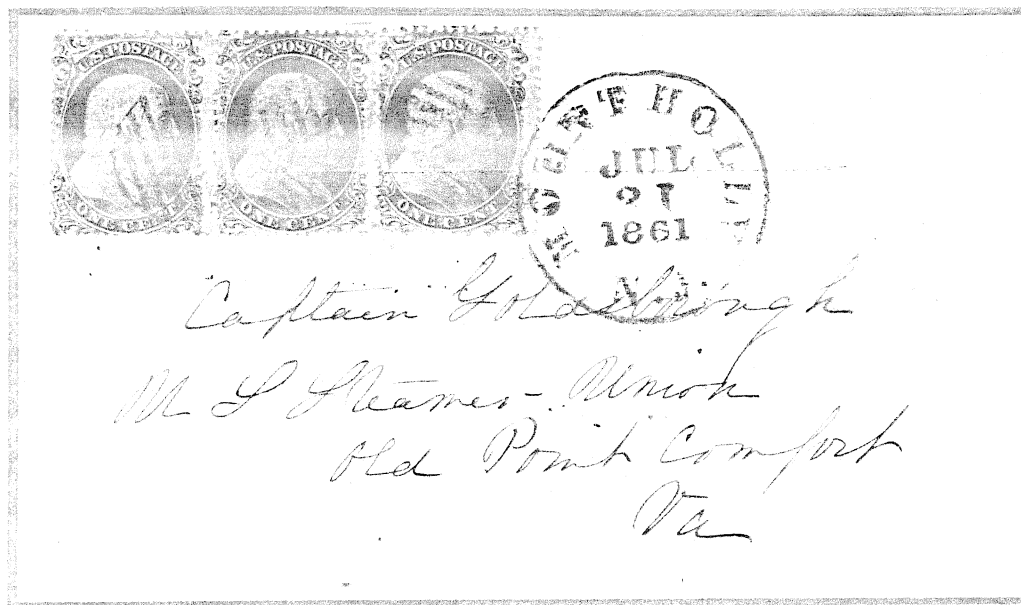 U.S. POSTAGE U.S. POSTAGE U.S. POSTAGE
ONE CENT ONE CENT ONE CENT
MOUNT HOLLY
JUL
21
1861
N.J.
Captain Goldsborough
U S Steamer - Union
Old Point Comfort
Va